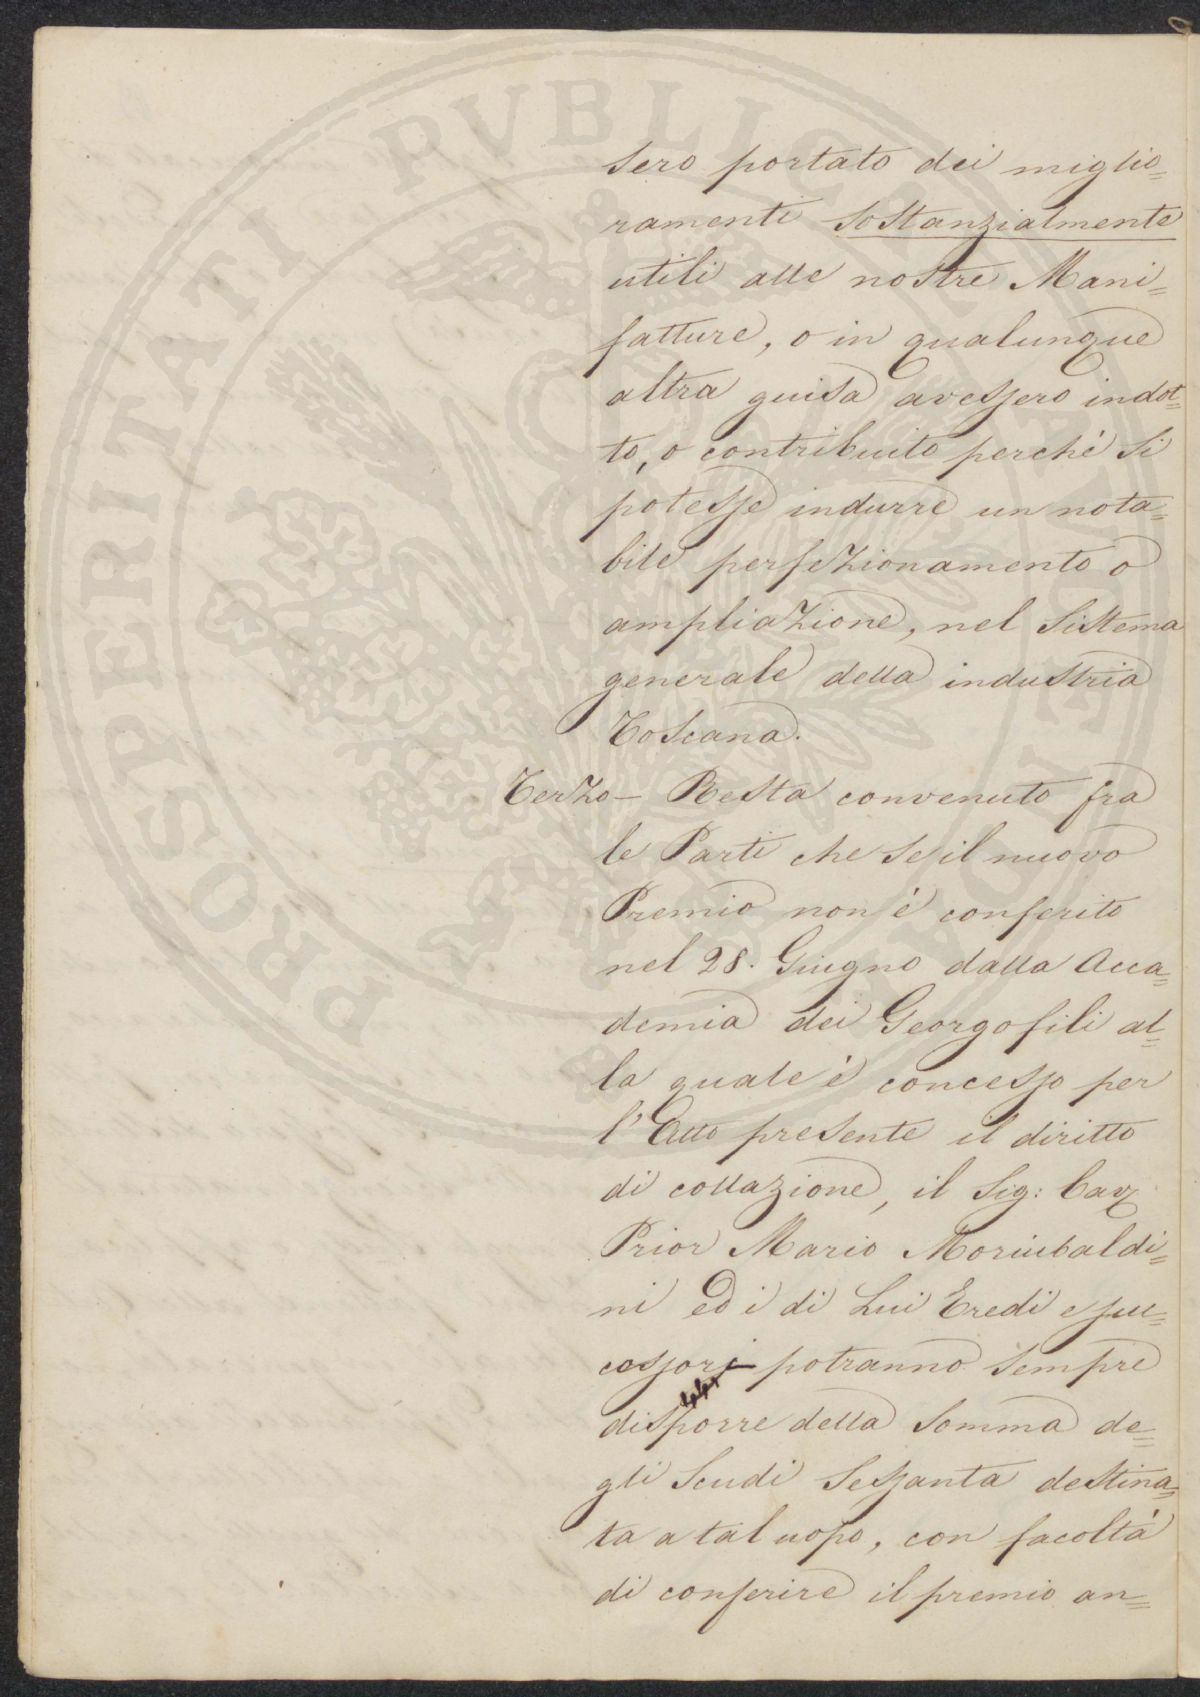 sero portato dei miglio=
ramenti sostanzialmente
utili alle nostre Mani=
fatture, o in qualunque
altra guisa avessero indot=
to, o contribuito perchè si
potesse indurre un nota=
bile perfezionamento o
ampliazione, nel sistema
generale della industria
Toscana.
Terzo — Resta convenuto fra
le Parti che se il nuovo
Premio non è conferito
nel 28. Giugno dalla Acca=
demia dei Georgofili al=
la quale è concesso per
l'Atto presente il diritto
di collazione, il Sig: Cav
Prior Mario Moriubaldi=
ni ed i di Lui Eredi e suc=
cessori potranno sempre
disporre della somma de=
gli Scudi Sessanta destina=
ta a tal uopo, con facoltà
di conferire il premio an=
PROSPERITATI PVBLICAE AVGENDAE